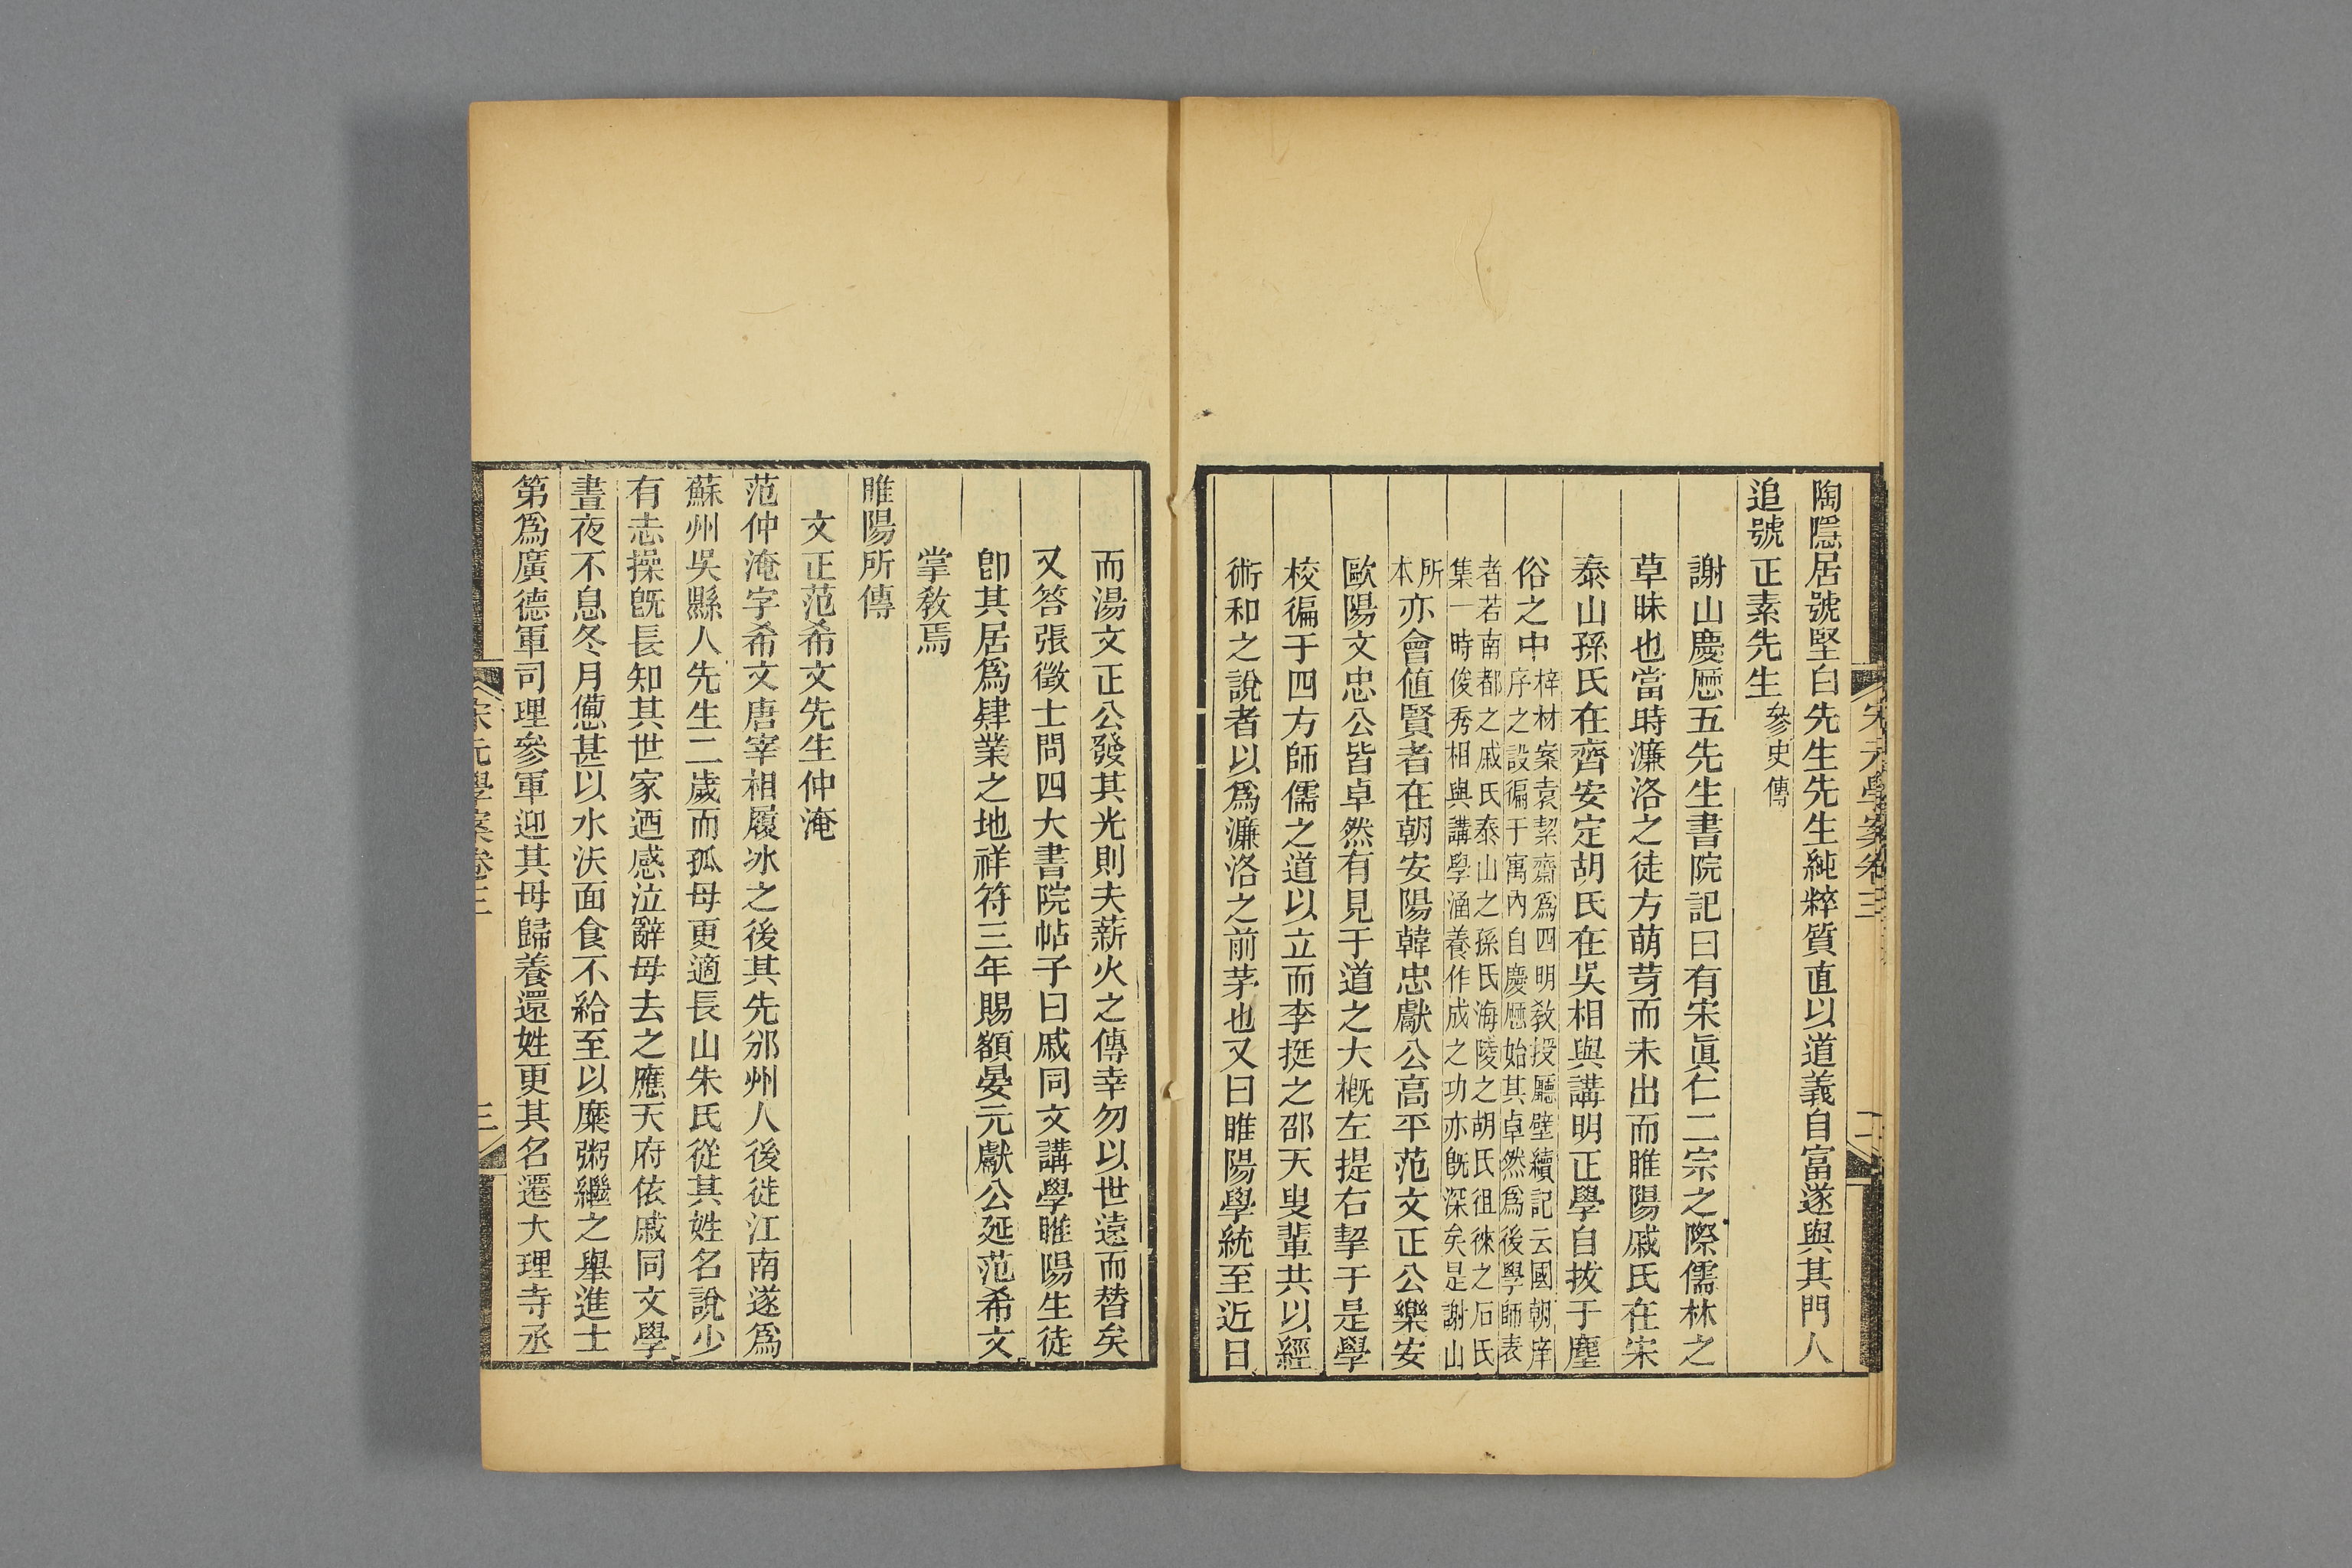 宋元學案卷三
二
陶隱居號堅白先生先生純粹質直以道義自富遂與其門人
追號正素先生參史傳
謝山慶厯五先生書院記曰有宋眞仁二宗之際儒林之
草昧也當時濂洛之徒方萌芽而未出而睢陽戚氏在宋
泰山孫氏在齊安定胡氏在吳相與講明正學自拔于塵
俗之中梓材案袁絜齋爲四明敎授廳壁續記云國朝庠
序之設徧于寓內自慶厯始其卓然爲後學師表
者若南都之戚氏泰山之孫氏海陵之胡氏徂徠之石氏
集一時俊秀相與講學涵養作成之功亦旣深矣是謝山
所
本亦會値賢者在朝安陽韓忠獻公高平范文正公樂安
歐陽文忠公皆卓然有見于道之大槪左提右挈于是學
校徧于四方師儒之道以立而李挺之邵天叟輩共以經
術和之說者以爲濂洛之前茅也又曰睢陽學統至近日
而湯文正公發其光則夫薪火之傳幸勿以世遠而替矣
又答張徵士問四大書院帖子曰戚同文講學睢陽生徒
卽其居爲肄業之地祥符三年賜額晏元獻公延范希文
掌敎焉
睢陽所傳
文正范希文先生仲淹
范仲淹字希文唐宰相履冰之後其先邠州人後徙江南遂爲
蘇州吳縣人先生二歲而孤母更適長山朱氏從其姓名說少
有志操旣長知其世家迺感泣辭母去之應天府依戚同文學
晝夜不息冬月憊甚以水沃面食不給至以糜粥繼之舉進士
第爲廣德軍司理參軍迎其母歸養還姓更其名遷大理寺丞
宋元學案卷三
三